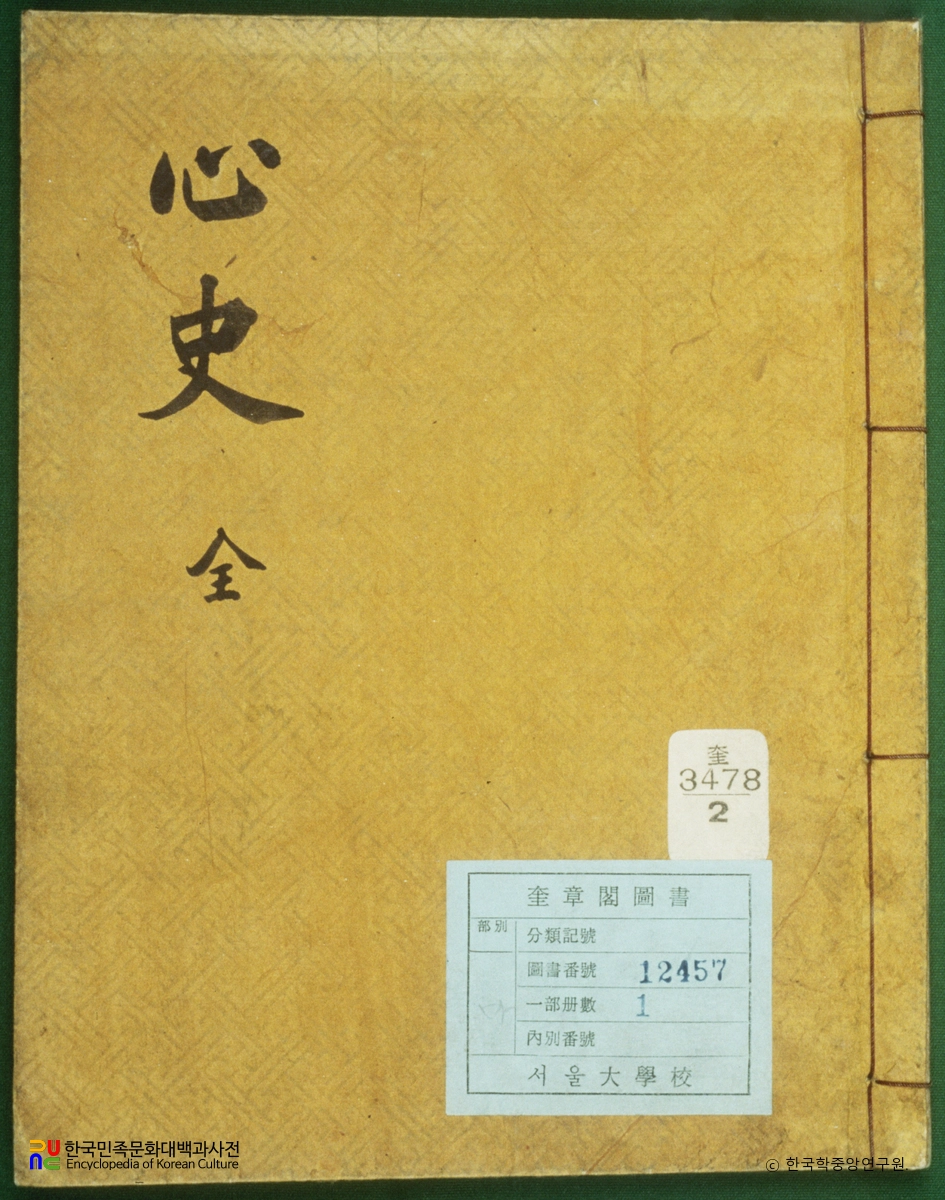 心史 全
奎
3478
2
奎章閣圖書
部別
分類記號
圖書番號 12457
一部册數 1
內別番號
서울大學校
한국민족문화대백과사전
Encyclopedia of Korean Culture
© 한국학중앙연구원